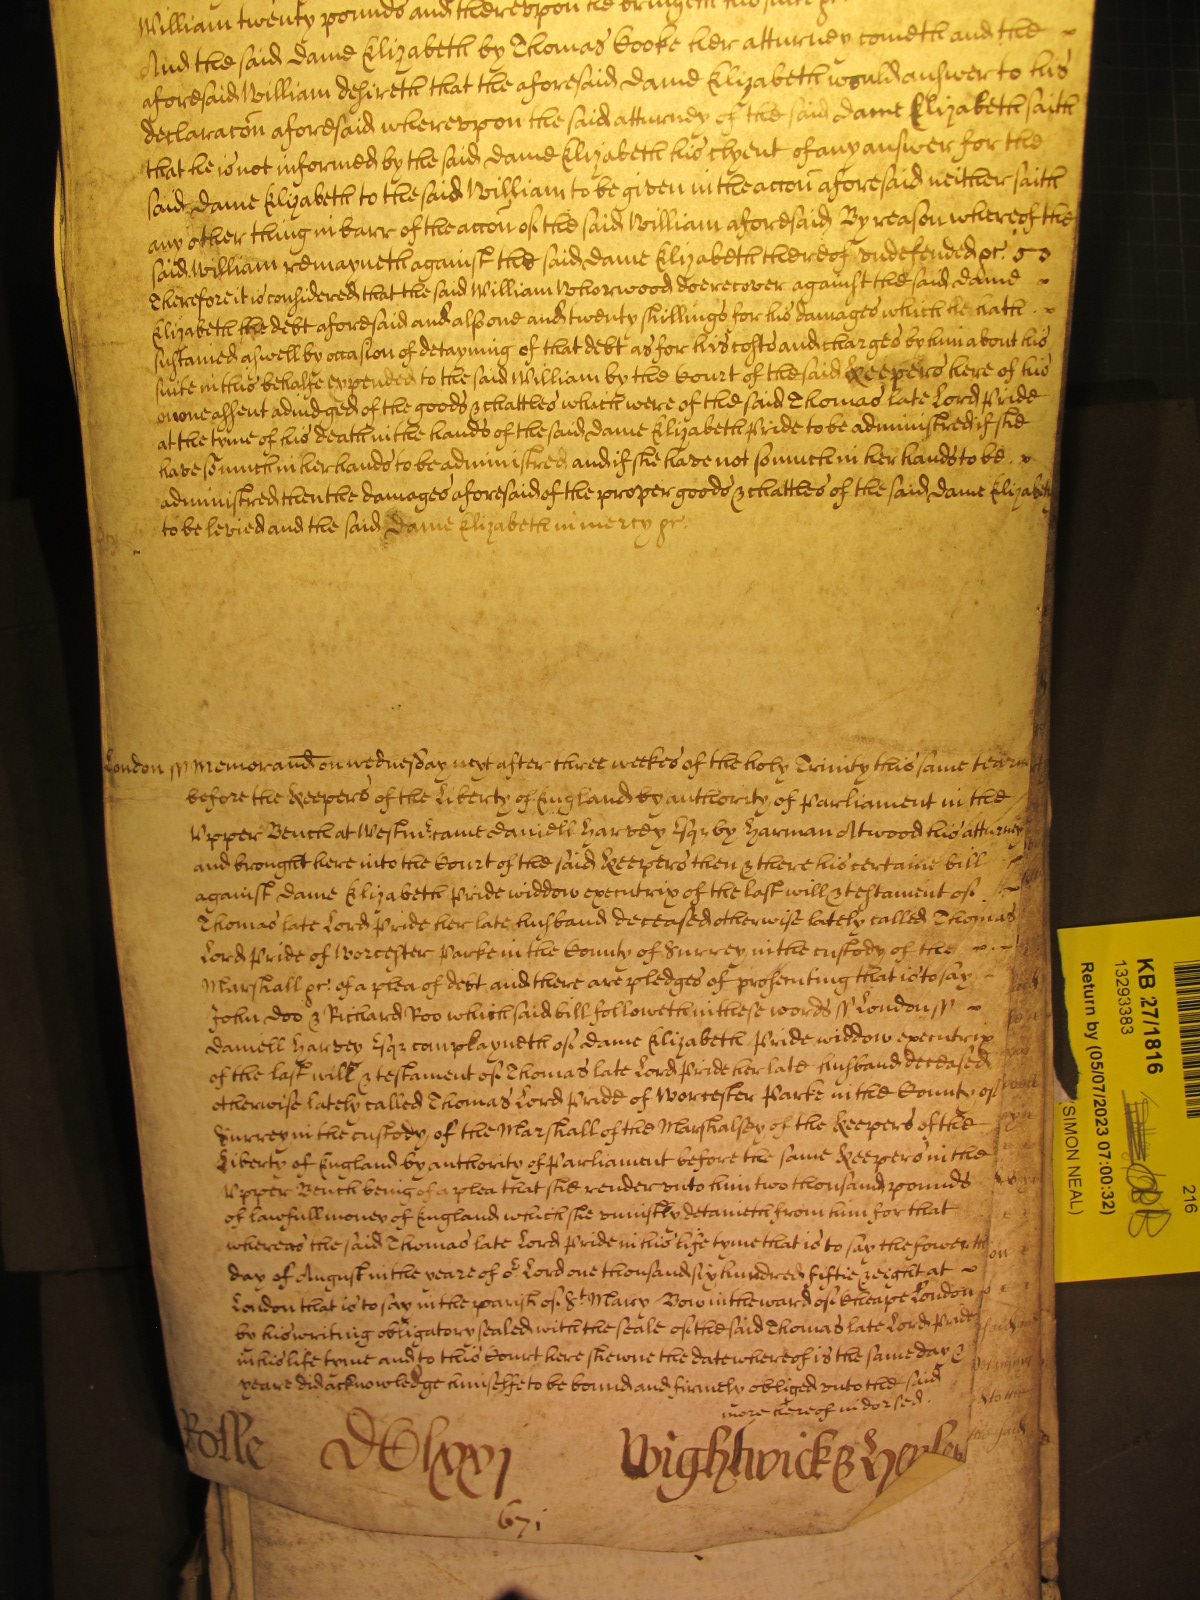 William twenty pounds and therevpon he bringeth his suite &c.
And the said Dame Elizabeth by Thomas Cooke her atturney cometh and the
aforesaid William desireth that the aforesaid Dame Elizabeth would answer to his
declaracon aforesaid wherevpon the said atturney of the said Dame Elizabeth saith
that he is not informed by the said Dame Elizabeth his clyent of any answer for the
said Dame Elizabeth to the said William to be given in the accon aforesaid neither saith
any other thing in barr of the accon of the said William aforesaid By reason whereof the
said William remayneth against the said Dame Elizabeth thereof vndefended &c.
Therefore it is considered that the said William Whorwood doe recover against the said Dame
Elizabeth the debt aforesaid and alsoe one and twenty shillings for his damages which he hath
sustained aswell by occasion of detayning of that debt as for his costs and charges by him about his
suite in this behalfe expended to the said William by the Court of the said Keepers here of his
owne assent adiudged of the goods & chattles which were of the said Thomas late Lord Pride
at the tyme of his death in the hands of the said Dame Elizabeth Pride to be administred if she
have soe much in her hands to be administred and if she have not soe much in her hands to be
administred then the damages aforesaid of the proper goods & chattles of the said Dame Elizabeth
to be levied and the said Dame Elizabeth in mercy &c.
London ss Memorand on wednesday next after three weekes of the holy Trinity this same tearme
before the Keepers of the Liberty of England by authority of Parliament in the
Vpper Bench at Westmr came Daniell Harvey Esqr by Harman Atwood his atturney
and brought here into the Court of the said Keepers then & there his certaine bill
against Dame Elizabeth Pride widdow executrix of the last will & testament of
Thomas late Lord Pride her late husband deceased otherwise lately called Thomas
Lord Pride of Worcester Parke in the County of Surrey in the custody of the
Marshall &c. of a plea of debt and there are pledges of prosecuting that is to say
John Doo & Richard Roo which said bill followeth in these words ss London ss
Daniell Harvey Esqr complayneth of Dame Elizabeth Pride widdow executrix
of the last will & testament of Thomas late Lord Pride her late husband deceased
otherwise lately called Thomas Lord Pride of Worcester Parke in the County of
Surrey in the custody of the Marshall of the Marshalsey of the Keepers of the
Liberty of England by authority of Parliament before the same Keepers in the
Vpper Bench being of a plea that she render vnto him two thousand pounds
of lawfull money of England which she vniustly detaineth from him for that
whereas the said Thomas late Lord Pride in his life tyme that is to say the fowerth
day of August in the yeare of or Lord one thousand six hundred fiftie & eight at
London that is to say in the parish of St Mary Bow in the ward of Cheape London
by his writing obligatory sealed with the seale of the said Thomas late Lord Pride
in his life tyme and to this Court here shewne the date whereof is the same day &
yeare did acknowledge himselfe to be bound and firmely obliged vnto the said
more thereof indorsed.
Rolle DClxxj Wightwick &
671
KB 27/1816
13293383
Return by (05/07/2023 07:00:32)
SIMON NEAL)
216